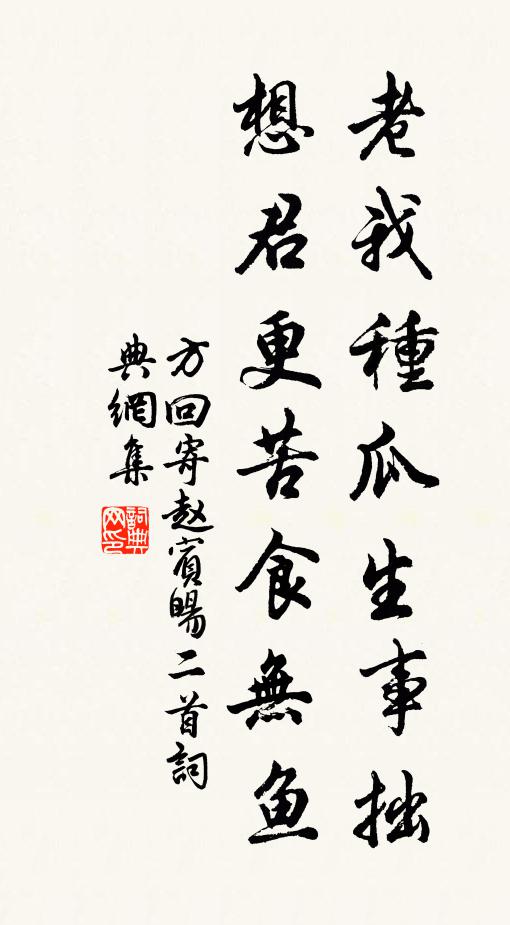 老我種瓜生事拙
想君更苦食無魚
方回寄赵賓暘二首詞
典網集
詞典网印